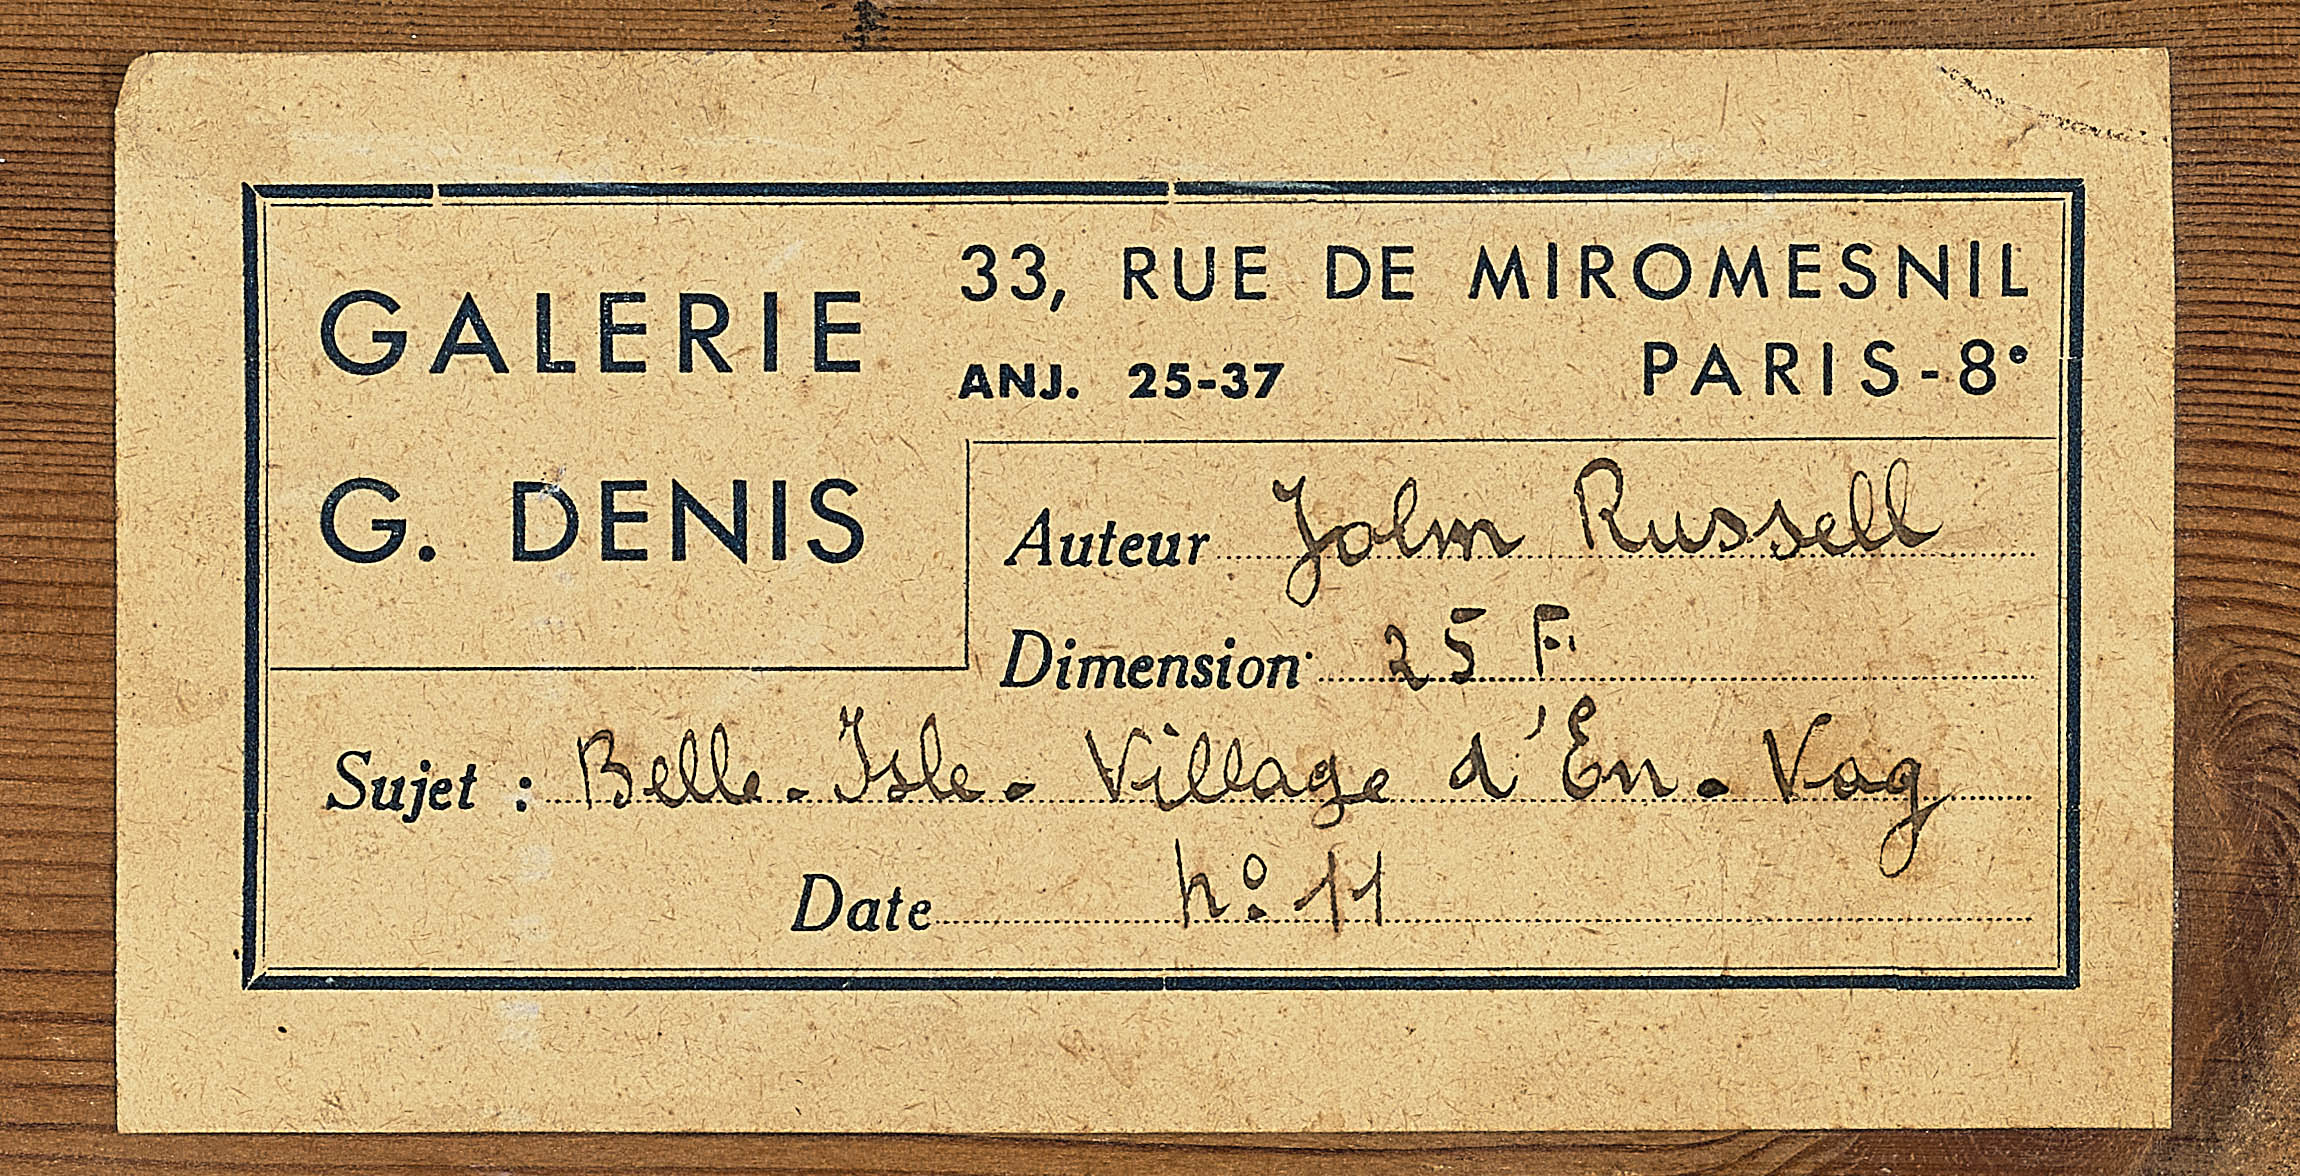 GALERIE
G. DENIS
33, RUE DE MIROMESNIL
ANJ. 25-37 PARIS-8e
Auteur John Russell
Dimension 25 F.
Sujet : Belle-Isle - Village d'En-Vag
Date No 11